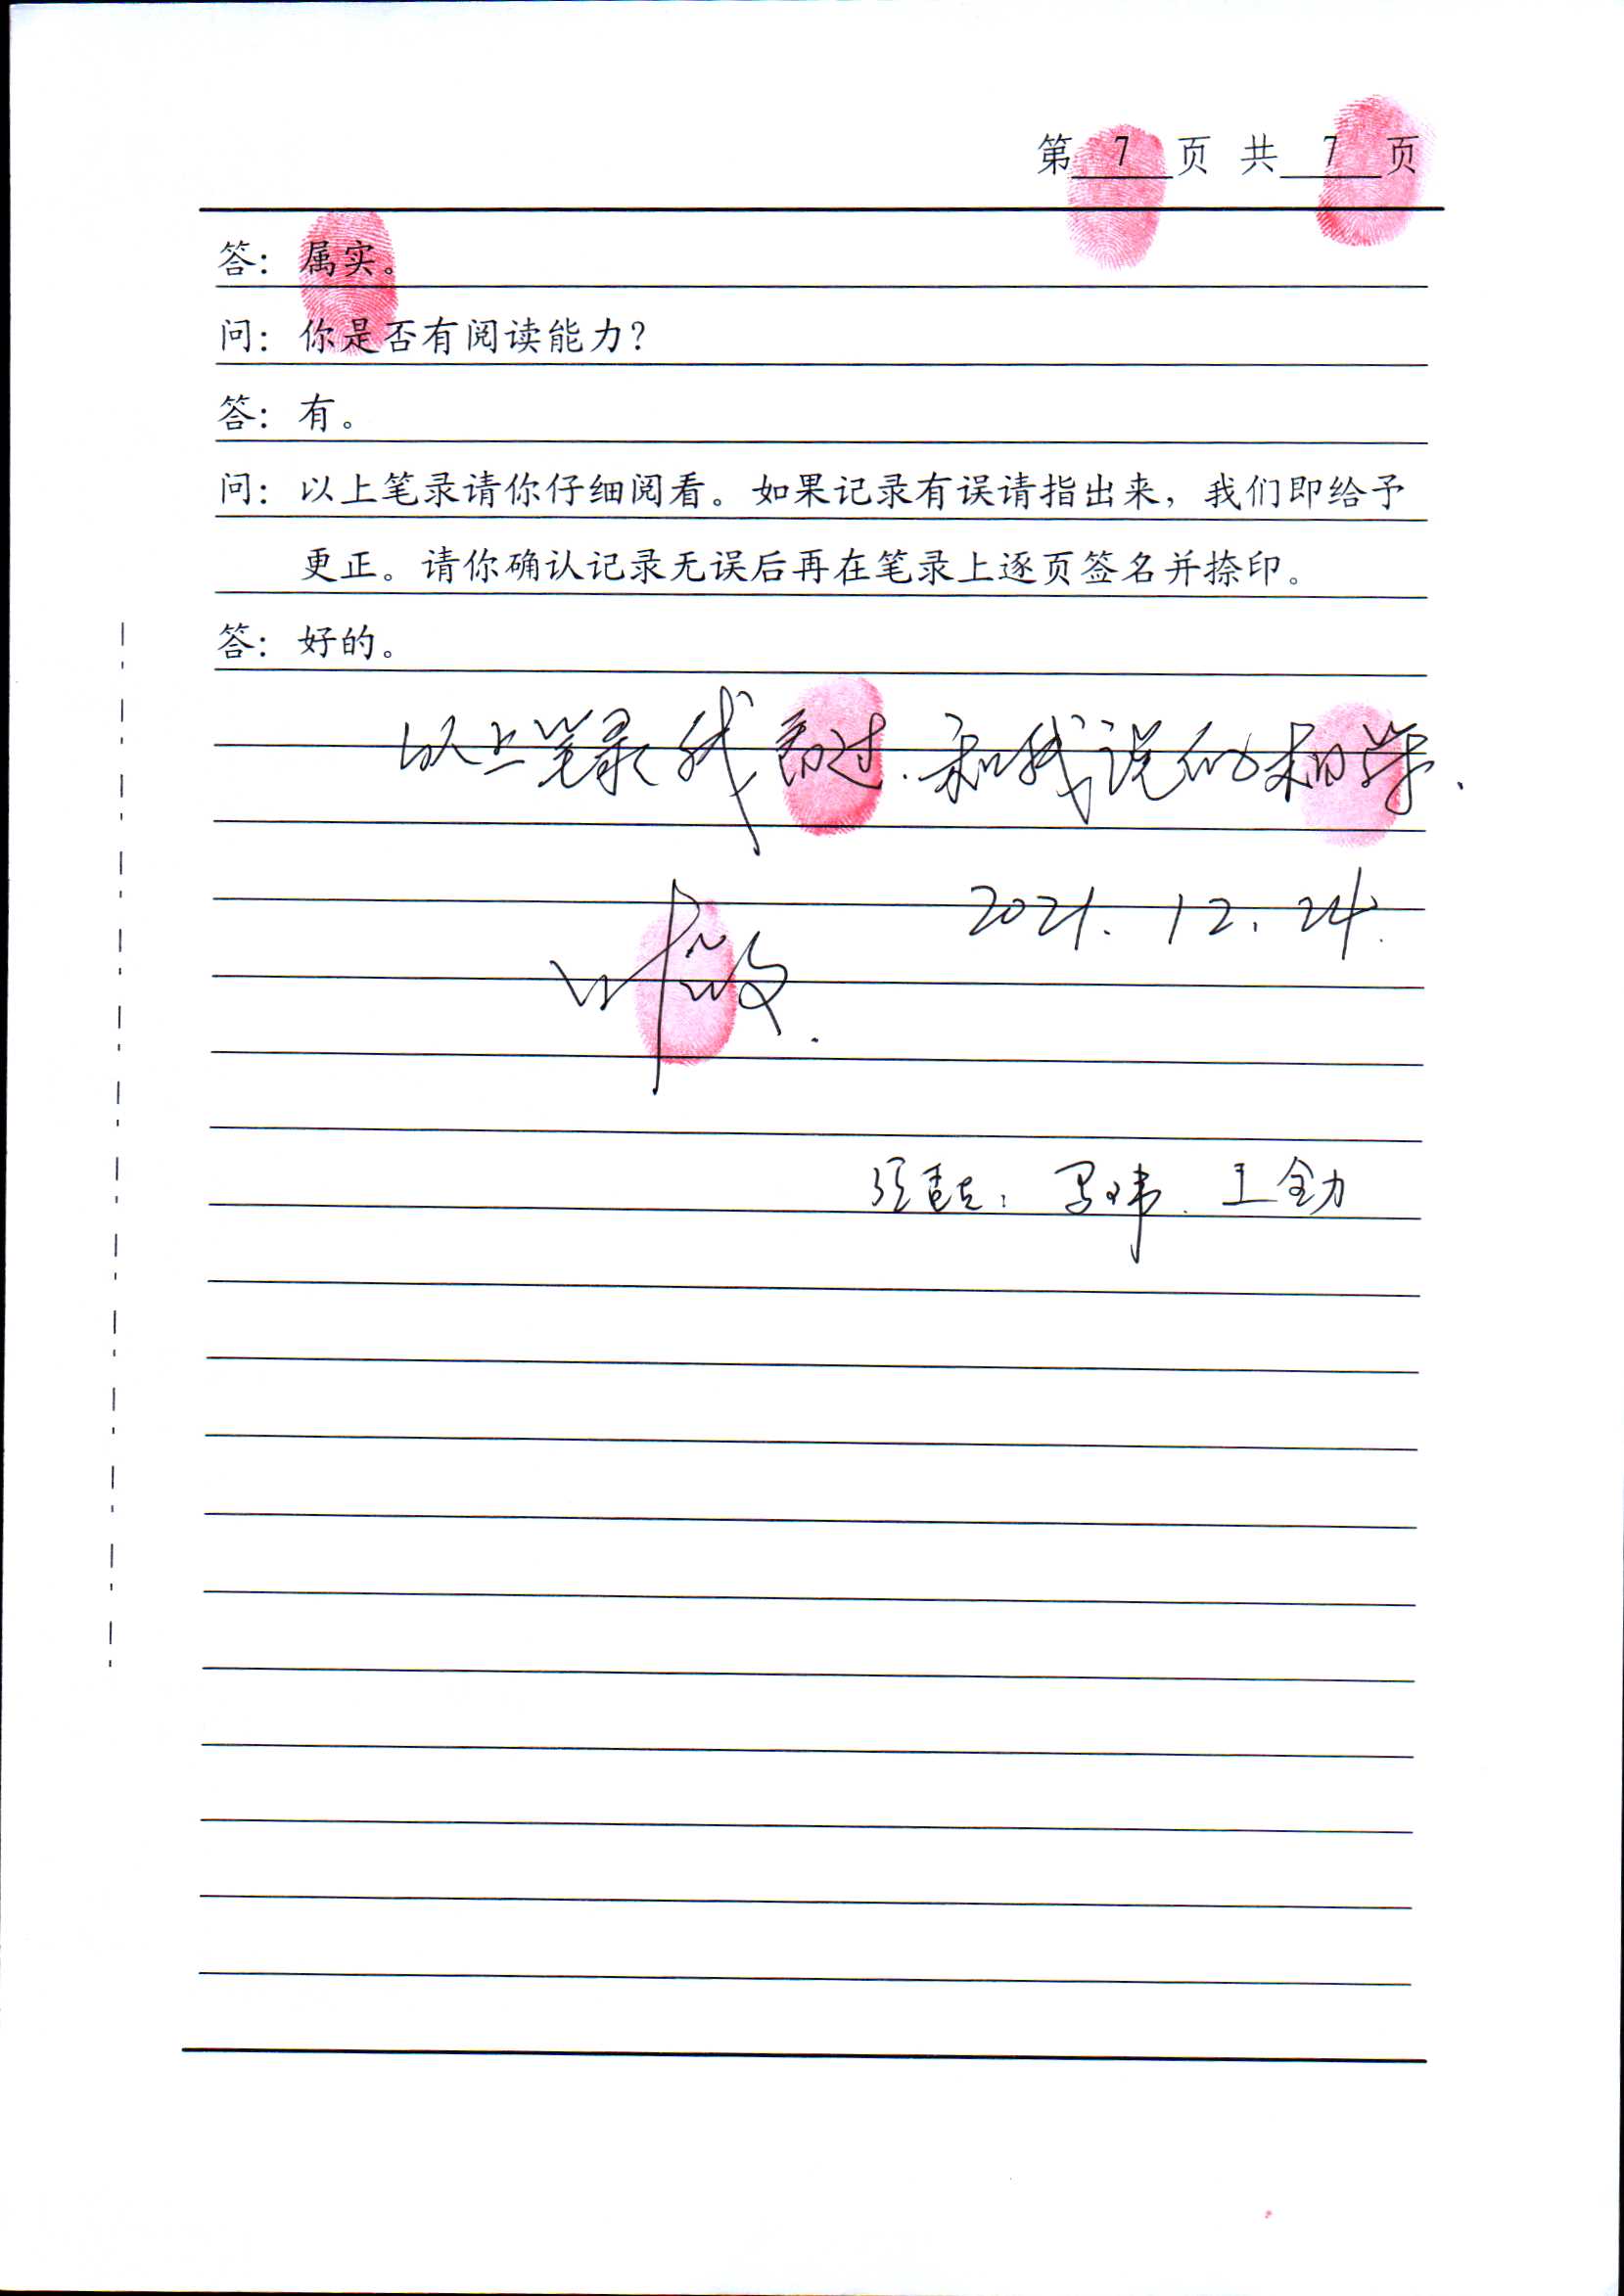 第 7 页 共 7 页
答：属实。
问：你是否有阅读能力？
答：有。
问：以上笔录请你仔细阅看。如果记录有误请指出来，我们即给予
更正。请你确认记录无误后再在笔录上逐页签名并捺印。
答：好的。
以上笔录我看过.和我说的相符.
2021.12.24.